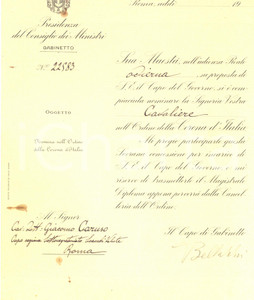 Roma, addì 19
Presidenza
del Consiglio dei Ministri
GABINETTO
N.° 22553
OGGETTO
Nomina nell'Ordine
della Corona d'Italia
Sua Maestà, nell'udienza Reale
odierna su proposta di
S.E. il Capo del Governo, si è com
piaciuta nominare la Signoria Vostra
Cavaliere
nell'Ordine della Corona d'Italia
Mi pregio parteciparle questa
Sovrana concessione per incarico di
S.E. il Capo del Governo e mi
riservo di trasmetterle il Magistrale
Diploma appena perverrà dalla Cancel
leria dell'Ordine.
Il Capo di Gabinetto
Al Signor
Cav. Giacomo Caruso
Capo
Roma